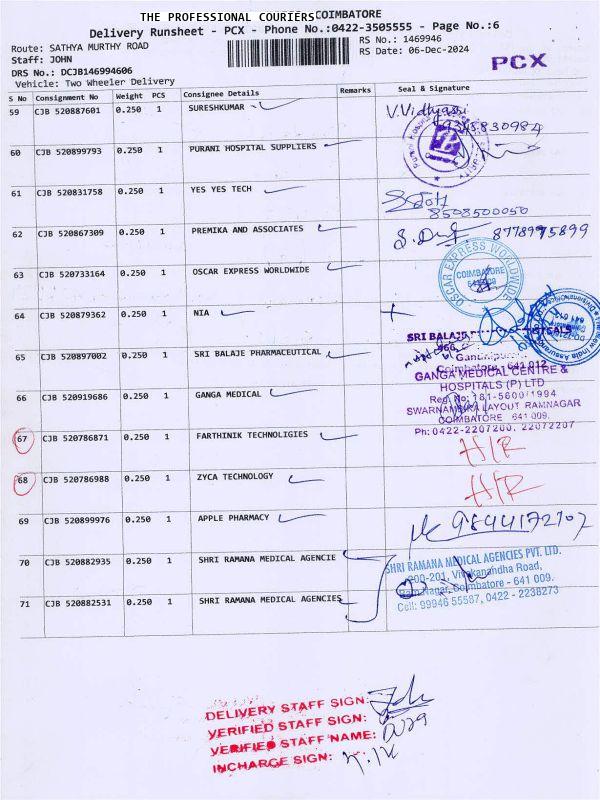 THE PROFESSIONAL COURIERS COIMBATORE
Delivery Runsheet - PCX - Phone No.:0422-3505555 - Page No.:6
Route: SATHYA MURTHY ROAD
RS No.: 1469946
Staff: JOHN
RS Date: 06-Dec-2024
PCX
DRS No.: DCJB146994606
Vehicle: Two Wheeler Delivery
S No Consignment No Weight PCS Consignee Details Remarks Seal & Signature
59 CJB 520887601 0.250 1 SURESHKUMAR
60 CJB 520899793 0.250 1 PURANI HOSPITAL SUPPLIERS
61 CJB 520831758 0.250 1 YES YES TECH 8508500050
62 CJB 520867309 0.250 1 PREMIKA AND ASSOCIATES 8778975899
63 CJB 520733164 0.250 1 OSCAR EXPRESS WORLDWIDE
OSCAR EXPRESS WORLDWIDE
COIMBATORE
64 CJB 520879362 0.250 1 NIA
SRI BALAJE
65 CJB 520897002 0.250 1 SRI BALAJE PHARMACEUTICAL
Coimbatore - 641 012
GANGA MEDICAL CENTRE &
HOSPITALS (P) LTD
66 CJB 520919686 0.250 1 GANGA MEDICAL
Reg. No: 181-5600/1994
SWARNAMBIKA LAYOUT RAMNAGAR
COIMBATORE 641 009.
Ph: 0422-2207200, 22072207
67 CJB 520786871 0.250 1 FARTHINIK TECHNOLIGIES H/R
68 CJB 520786988 0.250 1 ZYCA TECHNOLOGY H/R
69 CJB 520899976 0.250 1 APPLE PHARMACY
70 CJB 520882935 0.250 1 SHRI RAMANA MEDICAL AGENCIE
SHRI RAMANA MEDICAL AGENCIES PVT. LTD.
200-201, Vivekanandha Road,
Ram Nagar, Coimbatore - 641 009.
Cell: 99946 55587, 0422 - 2238273
71 CJB 520882531 0.250 1 SHRI RAMANA MEDICAL AGENCIES
DELIVERY STAFF SIGN:
VERIFIED STAFF SIGN:
VERIFIED STAFF NAME:
INCHARGE SIGN: